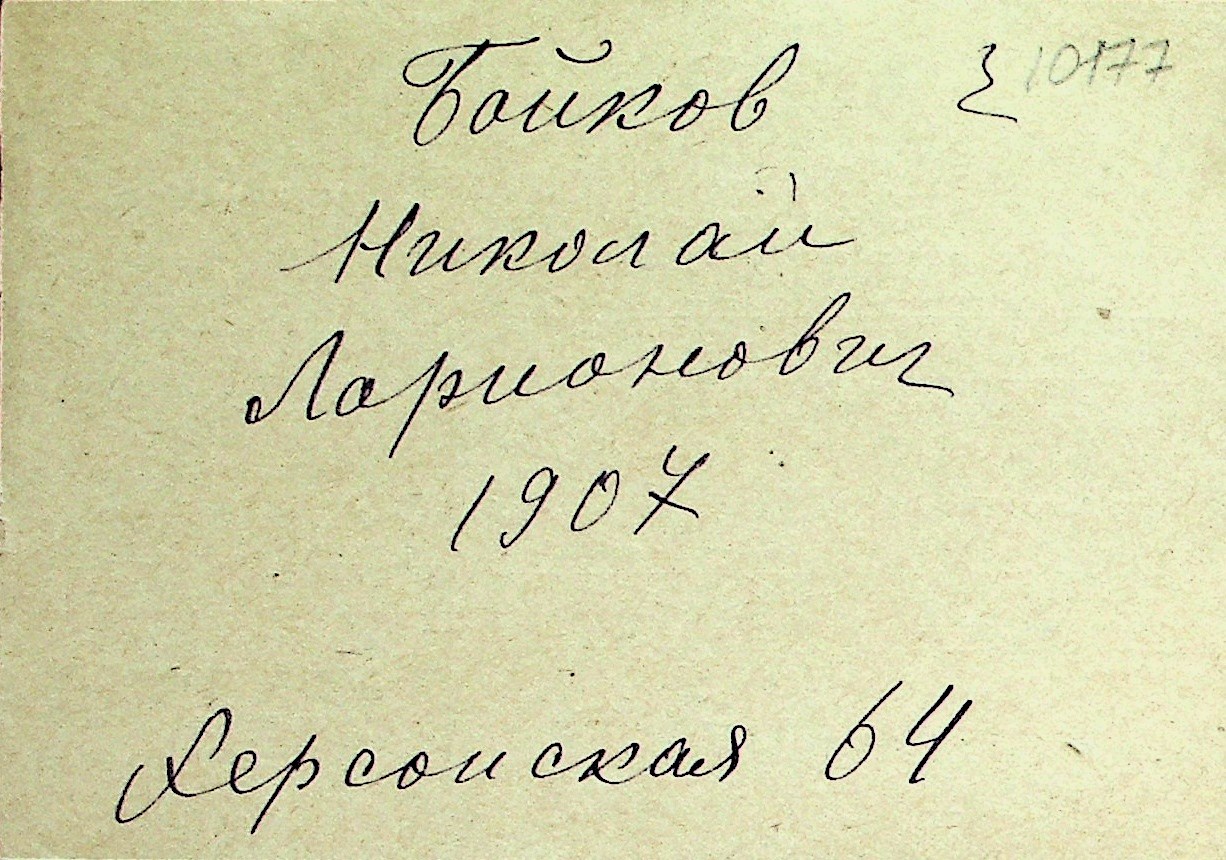 Бойков 10177
Николай
Ларионович
1907
Херсонская 64